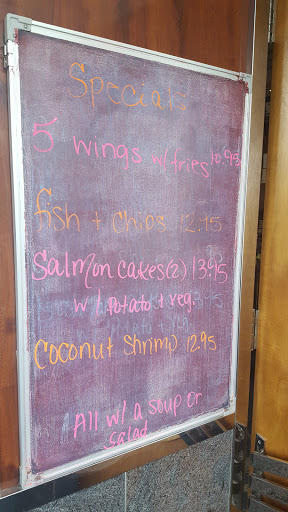 Specials
5 wings w/ fries 10.95
fish + chips 12.95
Salmon cakes(2) 13.95
w/ potato + veg.
Coconut Shrimp 12.95
All w/ a soup or
salad